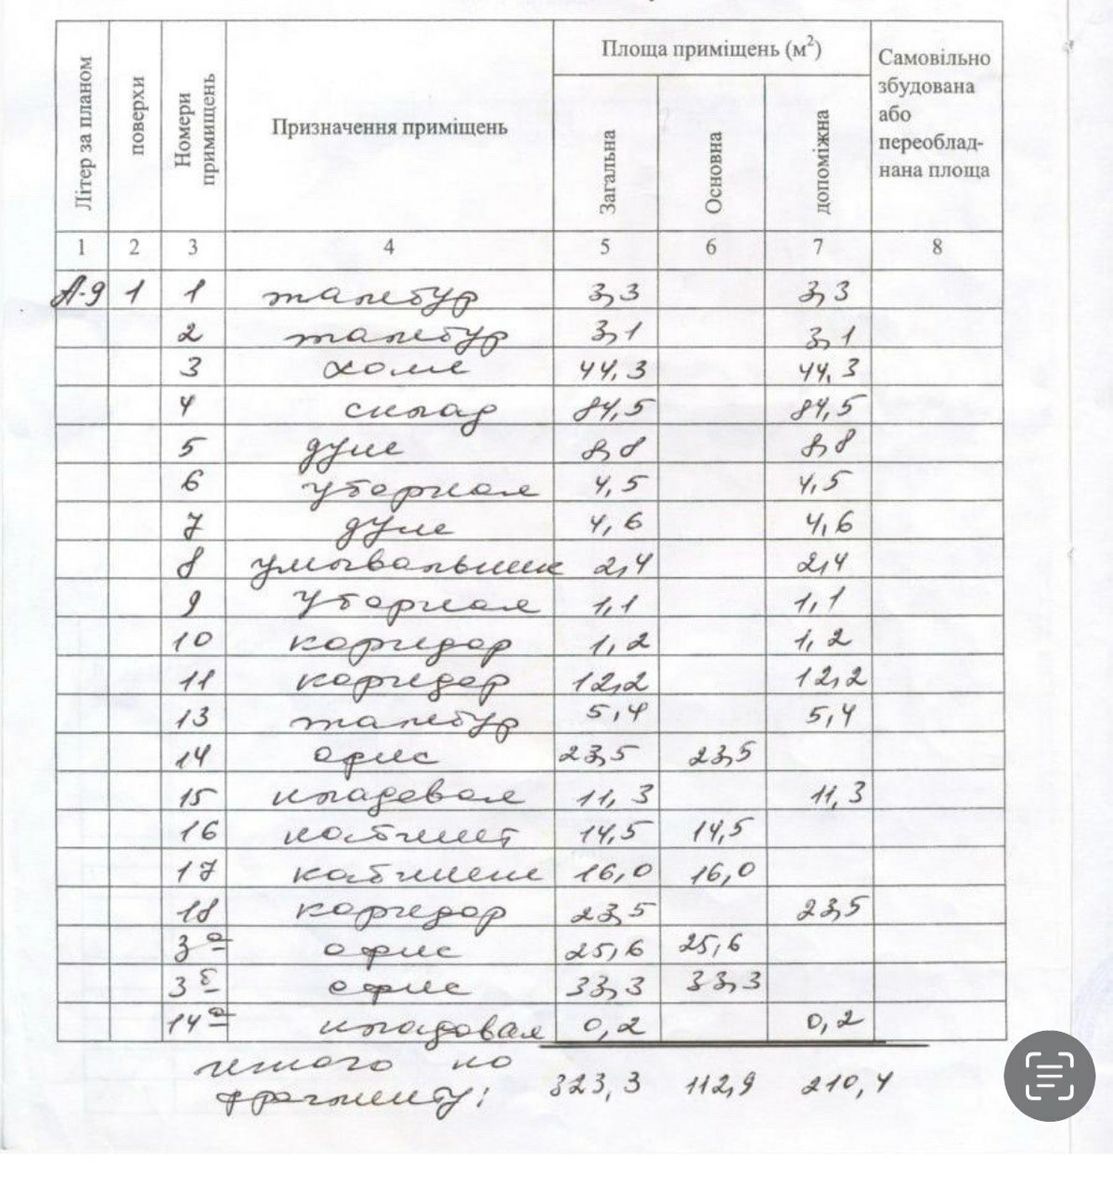 Літер за планом | поверхи | Номери примищень | Призначення приміщень | Площа приміщень (м²) | Самовільно збудована або переоблад- нана площа
Загальна | Основна | допоміжна
1 | 2 | 3 | 4 | 5 | 6 | 7 | 8
А-9 | 1 | 1 | тамбур | 3,3 | | 3,3
2 | тамбур | 3,1 | | 3,1
3 | холл | 44,3 | | 44,3
4 | склад | 84,5 | | 84,5
5 | душ | 8,8 | | 8,8
6 | уборная | 4,5 | | 4,5
7 | душ | 4,6 | | 4,6
8 | умывальник | 2,4 | | 2,4
9 | уборная | 1,1 | | 1,1
10 | коридор | 1,2 | | 1,2
11 | коридор | 12,2 | | 12,2
13 | тамбур | 5,4 | | 5,4
14 | офис | 23,5 | 23,5
15 | кладовая | 11,3 | | 11,3
16 | кабинет | 14,5 | 14,5
17 | кабинет | 16,0 | 16,0
18 | коридор | 23,5 | | 23,5
3а | офис | 25,6 | 25,6
3б | офис | 33,3 | 33,3
14а | кладовая | 0,2 | | 0,2
итого по
фрагменту: 323,3 | 112,9 | 210,4